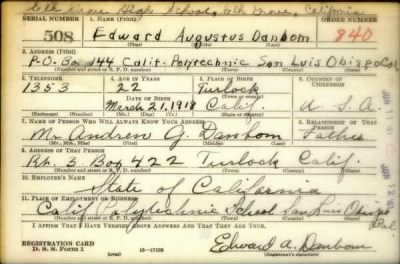 Elk Grove High School, Elk Grove, California
SERIAL NUMBER 1. NAME (Print) ORDER NUMBER
508 Edward Augustus Danbom 840
(First) (Middle) (Last)
2. ADDRESS (Print)
P.O. Box 144 Calif. Polytechnic San Luis Obispo Cal
(Number and street or R. F. D. number) (Town) (County) (State)
3. TELEPHONE 4. AGE IN YEARS 5. PLACE OF BIRTH 6. COUNTRY OF CITIZENSHIP
1353 22 Turlock
DATE OF BIRTH (Town or county)
March 21, 1918 Calif. U. S. A.
(Exchange) (Number) (Mo.) (Day) (Yr.) (State or country)
7. NAME OF PERSON WHO WILL ALWAYS KNOW YOUR ADDRESS 8. RELATIONSHIP OF THAT PERSON
Mr. Andrew G. Danbom Father
(Mr., Mrs., Miss) (First) (Middle) (Last)
9. ADDRESS OF THAT PERSON
Rt. 3 Box 422 Turlock Calif.
(Number and street or R. F. D. number) (Town) (County) (State)
10. EMPLOYER'S NAME
State of California
11. PLACE OF EMPLOYMENT OR BUSINESS
Calif Polytechnic School San Luis Obispo Cal.
(Number and street or R. F. D. number) (Town) (County) (State)
I AFFIRM THAT I HAVE VERIFIED ABOVE ANSWERS AND THAT THEY ARE TRUE.
REGISTRATION CARD
D. S. S. Form 1 (over) 16—17105 Edward A. Danbom